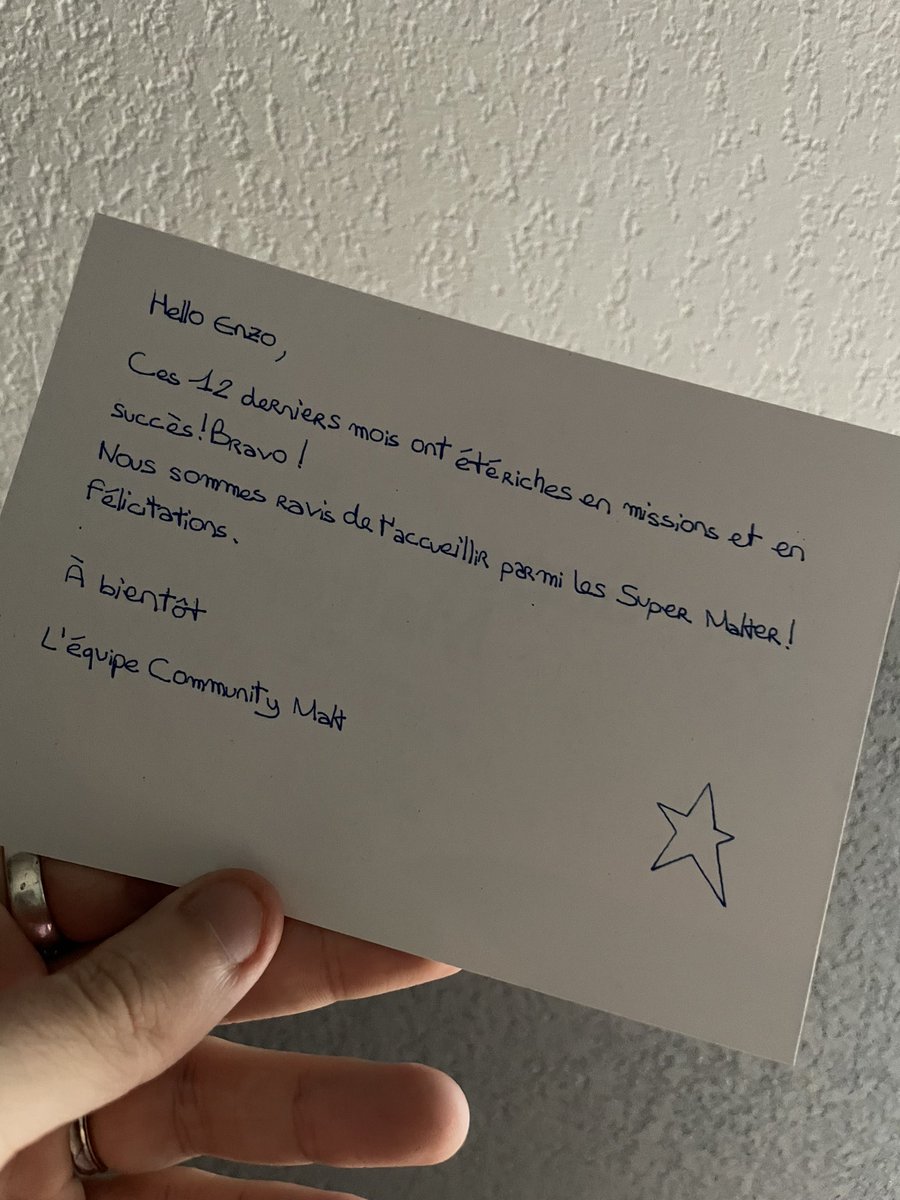 Hello Enzo,
Ces 12 derniers mois ont été riches en missions et en
succès ! Bravo !
Nous sommes ravis de t'accueillir parmi les Super Malter !
Félicitations.
À bientôt
L'équipe Community Malt